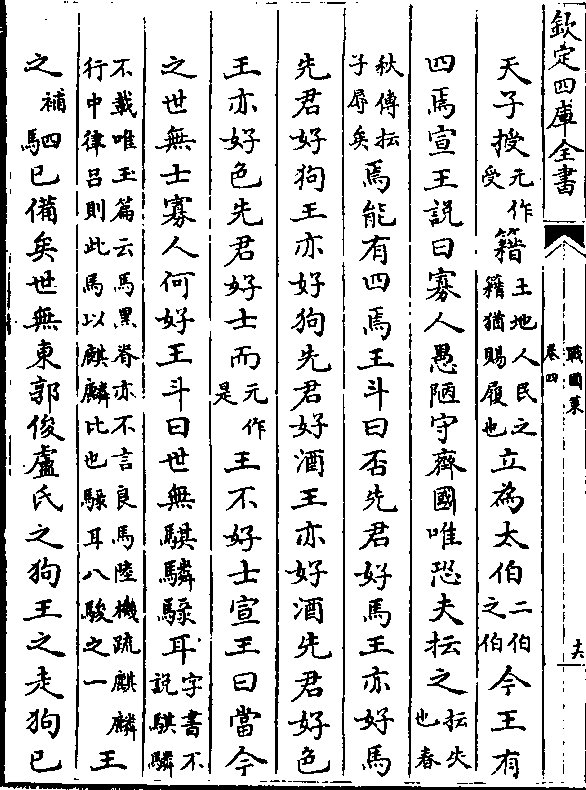 欽定四庫全書
戰國策
卷四
天子授元作受籍土地人民之籍猶賜履也立為太伯二伯之伯今王有
四焉宣王說曰寡人愚陋守齊國唯恐夫抎之抎失也春
秋傳抎子辱矣焉能有四焉王斗曰否先君好馬王亦好馬
先君好狗王亦好狗先君好酒王亦好酒先君好色
王亦好色先君好士而元作是王不好士宣王曰當今
之世無士寡人何好王斗曰世無騏驎騄耳字書不說騏驎
不載唯玉篇云馬黑脊亦不言良馬陸機疏麒麟行中律呂則此馬以麒麟比也騄耳八駿之一王
之補四馬已備矣世無東郭俊盧氏之狗王之走狗已